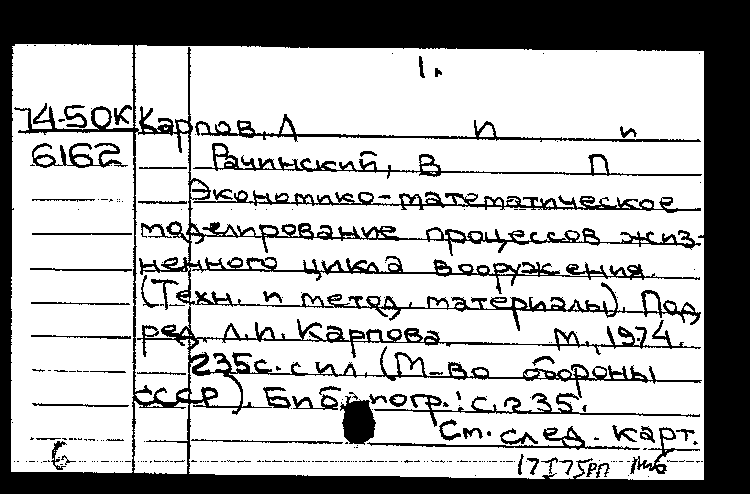 1.
74-50К Карпов, Л И и
6162 Рачинский, В П
Экономико-математическое
моделирование процессов жиз-
ненного цикла вооружения.
(Техн. и метод. материалы). Под
ред. Л.И. Карпова. М., 1974.
235с. с ил. (М-во обороны
СССР). Библиогр.: с. 235.
См. след. карт.
6 17 I 75рп